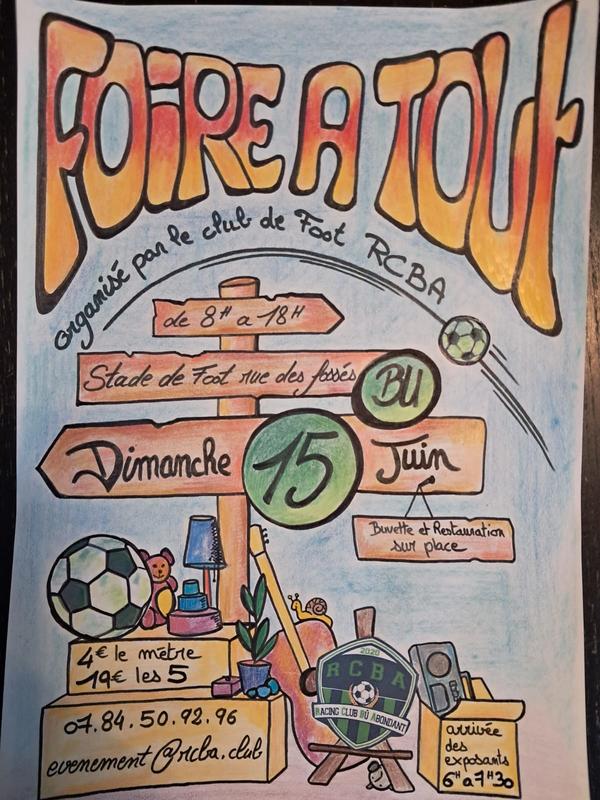 FOIRE A TOUT
organisé par le club de Foot RCBA
de 8H a 18H
Stade de Foot rue des fossés
BU
Dimanche 15 Juin
Buvette et Restauration
sur place
4€ le mètre
19€ les 5
07.84.50.92.96
evenement@rcba.club
2020
RCBA
RACING CLUB BÛ ABONDANT
arrivée
des
exposants
6H a 7H30